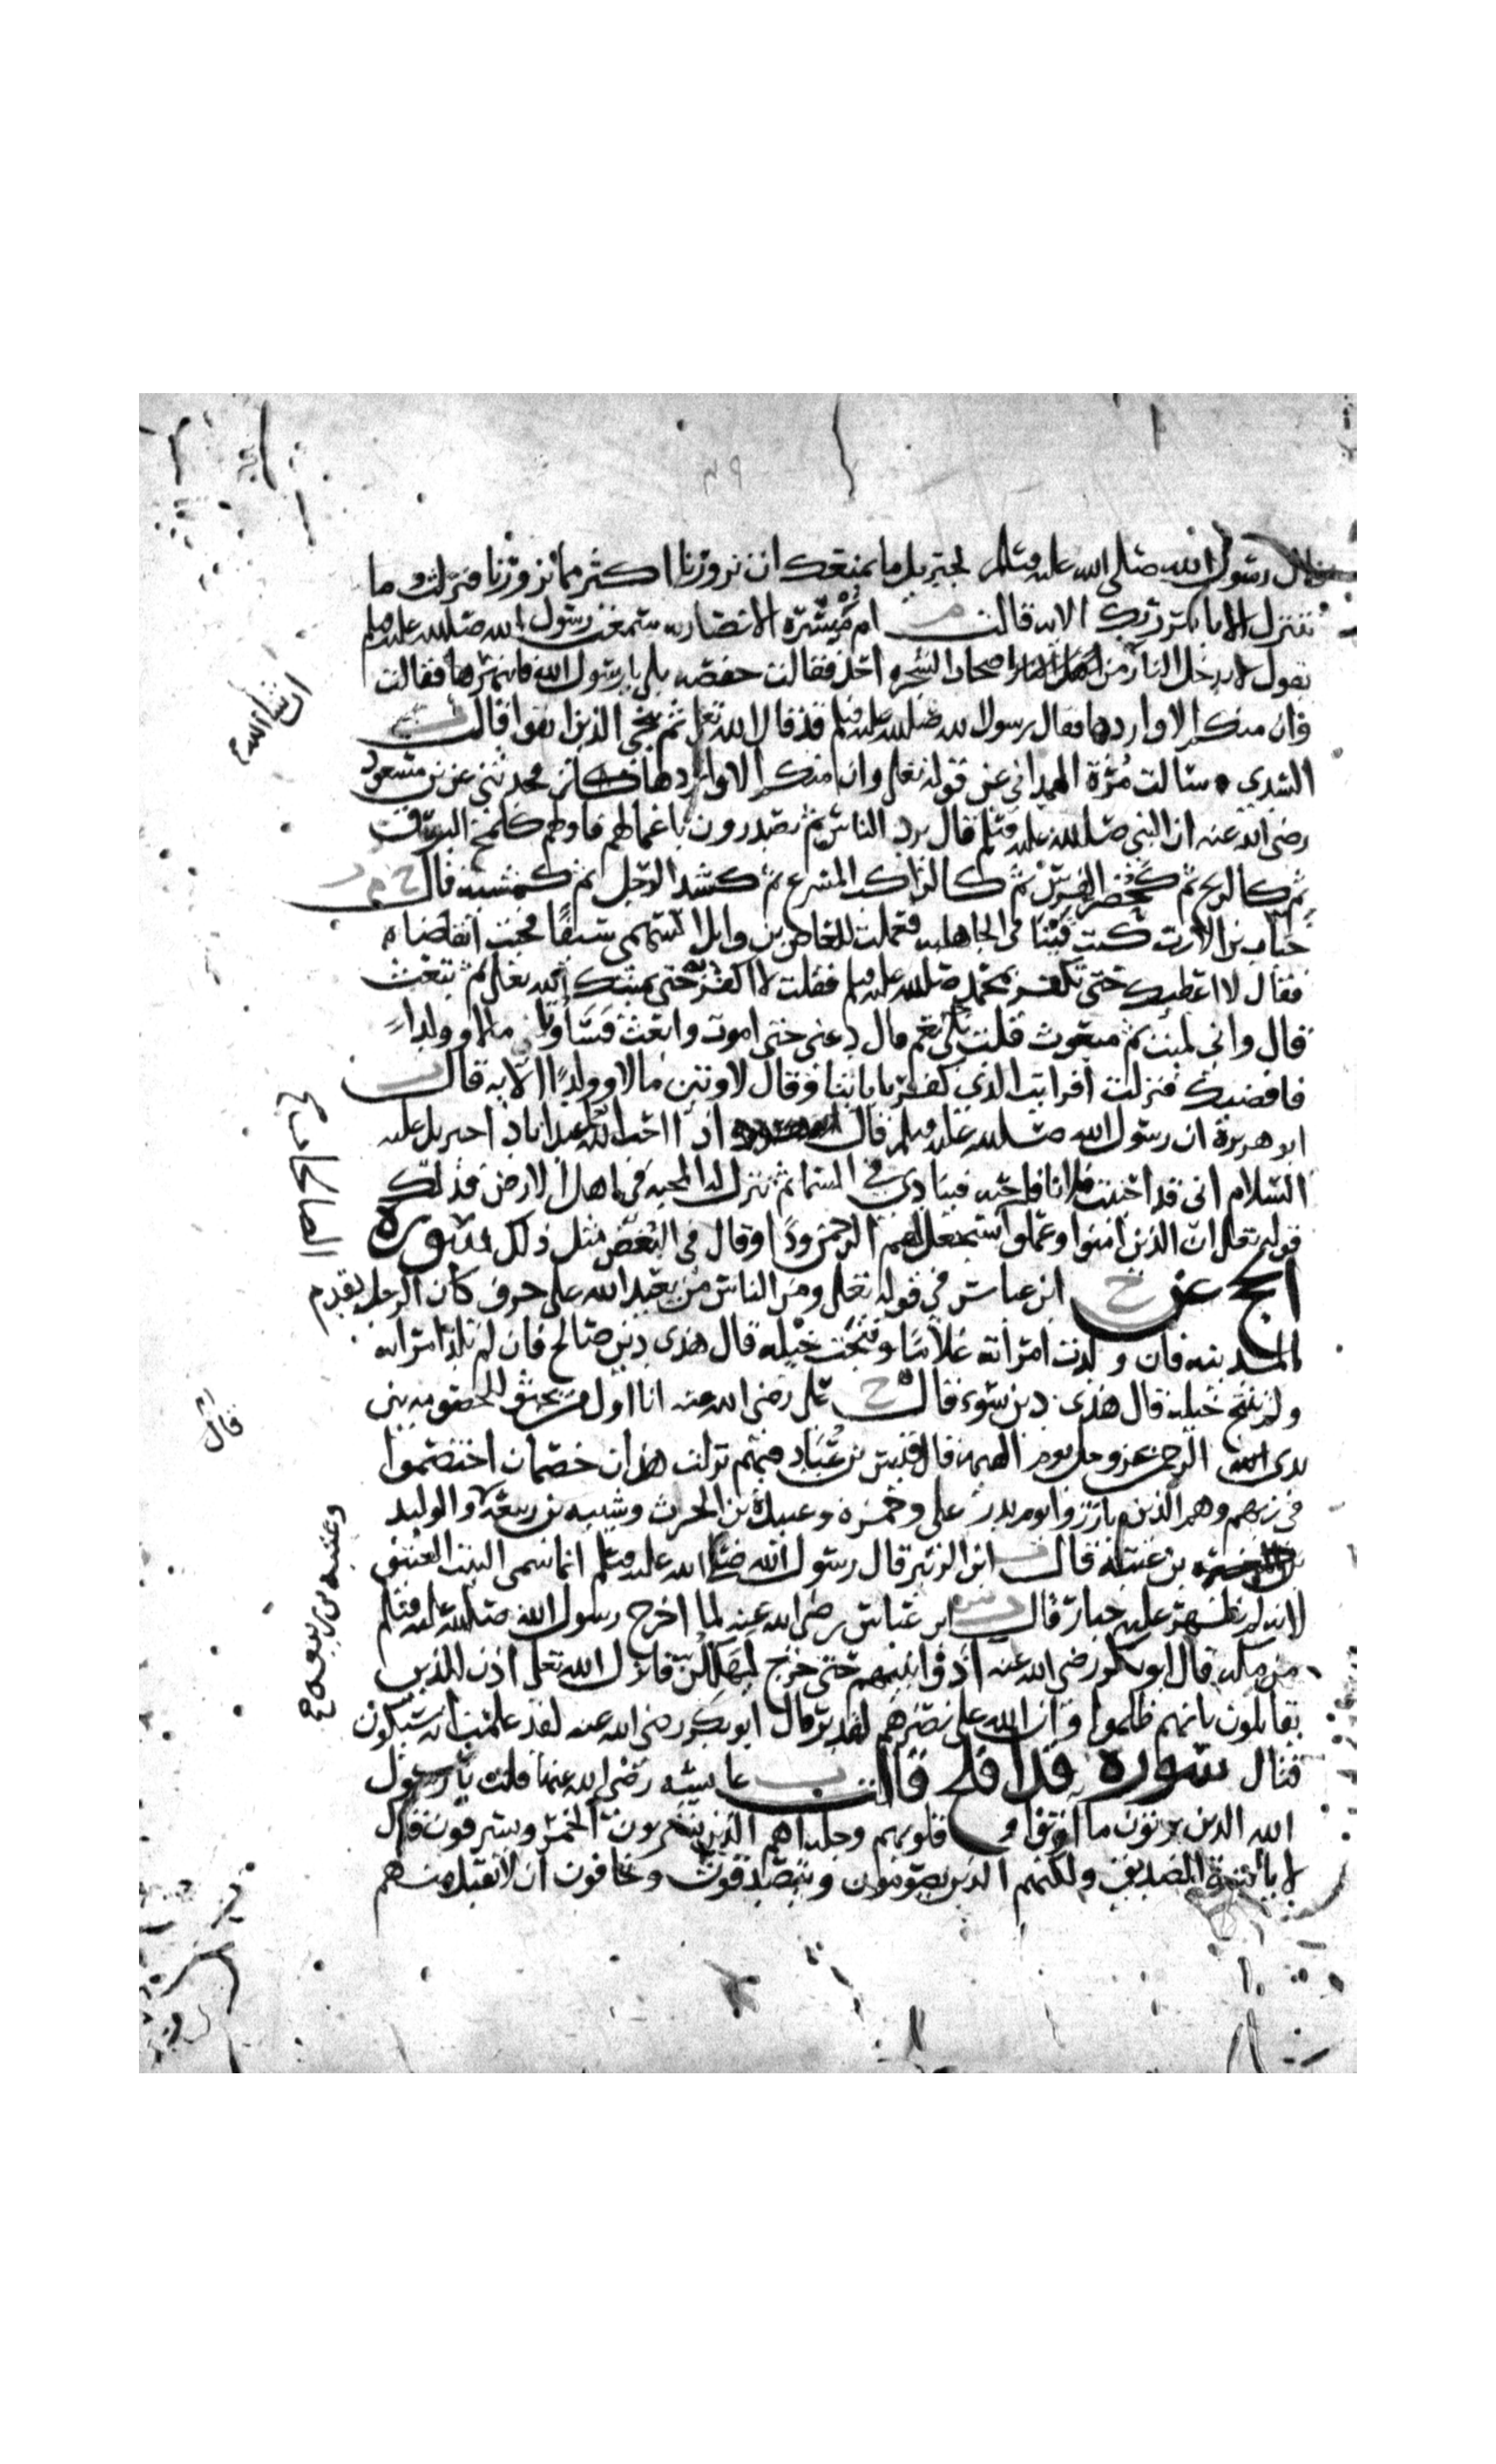 قال رسول الله صلى الله عليه وسلم لجبريل ما يمنعك ان تزورنا اكثر مما تزورنا فنزلت وما
نتنزل الا بامر ربك الايه قالت م ام مبشره الانصاريه سمعت رسول الله صلى الله عليه وسلم
يقول لا يدخل النار من اصحاب الشجره احد فقالت حفصه بلى يا رسول الله فانتهرها فقالت
وان منكم الا واردها فقال رسول الله صلى الله عليه وسلم قد قال الله تعلى ثم ننجي الذين اتقوا قال ت
السدي سالت مرة الهمداني عن قوله تعلى وان منكم الا واردها فحدثني عن بن مسعود
رضي الله عنه ان النبي صلى الله عليه وسلم قال يرد الناس ثم يصدرون باعمالهم فاولهم كلمح البرق
ثم كالريح ثم كحضر الفرس ثم كالراكب المسرع ثم كشد الرجل ثم كمشيه قال خ م ت
خباب بن الارت كنت قينا في الجاهليه فعملت للعاص بن وايل السهمي سيفا فجئت اتقاضاه
فقال لا اعطيك حتى تكفر بمحمد صلى الله عليه وسلم فقلت لا اكفر حتى يميتك الله تعالى ثم تبعث
قال واني لميت ثم مبعوث قلت بلى نعم قال دعني حتى اموت وابعث فسأوتى مالا وولدا
فاقضيك فنزلت افرايت الذي كفر باياتنا وقال لاوتين مالا وولدا الايه قال ت
ابو هريرة ان رسول الله صلى الله عليه وسلم قال اذا احب الله عبدا نادا جبريل عليه
السلام اني قد احببت فلانا فاحبه فينادي في السما ثم تنزل له المحبه في اهل الارض فذلك
قوله تعلى ان الذين امنوا وعملوا سيجعل لهم الرحمن ودا وقال في البغض مثل ذلك سورة
الحج عن خ ابن عباس في قوله تعلى ومن الناس من يعبد الله على حرف كان الرجل يقدم
المدينه فان ولدت امراته غلاما ونتجت خيله قال هذى دين صالح فان لم تلد امراته
ولم تنتج خيله قال هذى دين سوء قال خ علي رضي الله عنه انا اول من يجثو للخصومه بين
يدى الرحمن عز وجل يوم القيمه قال قيس بن عباد فيهم نزلت هذان خصمان اختصموا
في ربهم وهم الذين بارزوا يوم بدر علي وحمزه وعبيدة بن الحرث وشيبه بن ربيعة والوليد
بن عتبه قال ت ابن الزبير قال رسول الله صلى الله عليه وسلم انما سمي البيت العتيق
لانه لم يظهر عليه جبار قال ت س ابن عباس رضي الله عنه لما اخرج رسول الله صلى الله عليه وسلم
من مكه قال ابو بكر رضي الله عنه آذوا نبيهم حتى خرج ليهلكن فانزل الله تعلى اذن للذين
يقاتلون بانهم ظلموا وان الله على نصرهم لقدير قال ابو بكر رضي الله عنه لقد علمت انه سيكون
قتال سورة قد افلح قالت ت عايشه رضي الله عنها قلت يا رسول
الله الذين يوتون ما اوتوا وقلوبهم وجله اهم الذين يشربون الخمر ويسرقون قال
لا يا بنت الصديق ولكنهم الذين يصومون ويتصدقون وخافون ان لا يقبل منهم
ان شا الله
وعتبه بن ربيعه
قال